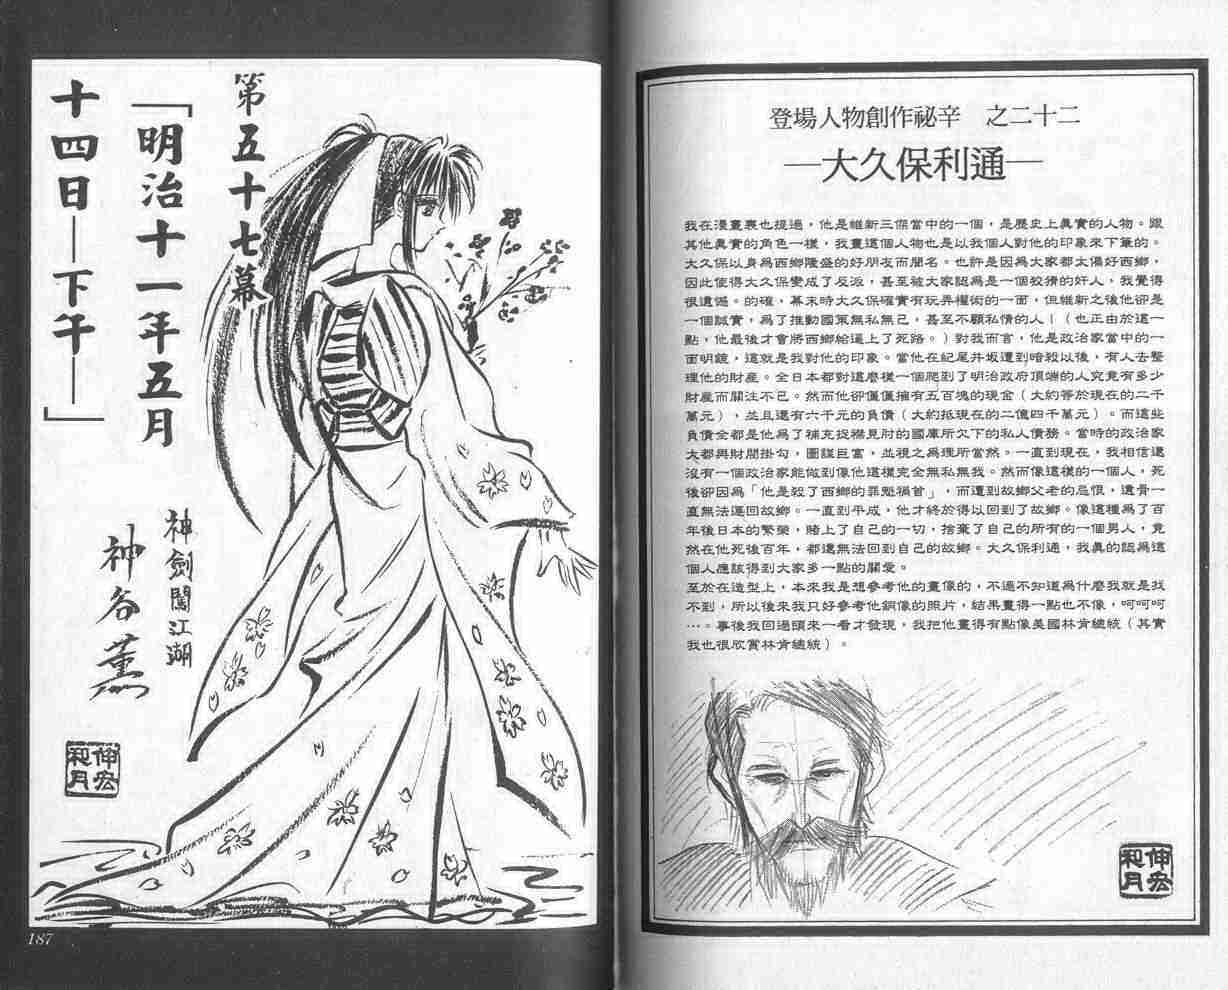 登場人物創作祕辛　之二十二
—大久保利通—
我在漫畫裏也提過，他是維新三傑當中的一個，是歷史上真實的人物。跟
其他真實的角色一樣，我畫這個人物也是以我個人對他的印象來下筆的。
大久保以身為西鄉隆盛的好朋友而聞名。也許是因為大家都太偏好西鄉，
因此使得大久保變成了反派，甚至被大家認為是一個狡猾的奸人，我覺得
很遺憾。的確，幕末時大久保確實有玩弄權術的一面，但維新之後他卻是
一個誠實，為了推動國策無私無己，甚至不顧私情的人！（也正由於這一
點，他最後才會將西鄉給逼上了死路。）對我而言，他是政治家當中的一
面明鏡，這就是我對他的印象。當他在紀尾井坂遭到暗殺以後，有人去整
理他的財產。全日本都對這麼樣一個爬到了明治政府頂端的人究竟有多少
財產而關注不已。然而他卻僅僅擁有五百塊的現金（大約等於現在的二千
萬元），並且還有六千元的負債（大約抵現在的二億四千萬元）。而這些
負債全都是他為了補充捉襟見肘的國庫所欠下的私人債務。當時的政治家
大都與財閥掛勾，圖謀巨富，並視之為理所當然。一直到現在，我相信還
沒有一個政治家能做到像他這樣完全無私無我。然而像這樣的一個人，死
後卻因為「他是殺了西鄉的罪魁禍首」，而遭到故鄉父老的忌恨，遺骨一
直無法運回故鄉。一直到平成，他才終於得以回到了故鄉。像這種為了百
年後日本的繁榮，賭上了自己的一切，捨棄了自己的所有的一個男人，竟
然在他死後百年，都還無法回到自己的故鄉。大久保利通，我真的認為這
個人應該得到大家多一點的關愛。
至於在造型上，本來我是想參考他的畫像的，不過不知道為什麼我就是找
不到，所以後來我只好參考他銅像的照片，結果畫得一點也不像，呵呵呵
…。事後我回過頭來一看才發現，我把他畫得有點像美國林肯總統（其實
我也很欣賞林肯總統）。
伸宏
和月
第五十七幕
「明治十一年五月
十四日——下午——」
神劍闖江湖
神谷薰
伸宏
和月
187